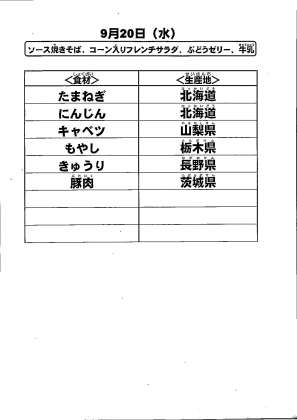 9月20日（水）
ソース焼きそば、コーン入りフレンチサラダ、ぶどうゼリー、牛乳
＜食材＞ ＜生産地＞
たまねぎ 北海道
にんじん 北海道
キャベツ 山梨県
もやし 栃木県
きゅうり 長野県
豚肉 茨城県